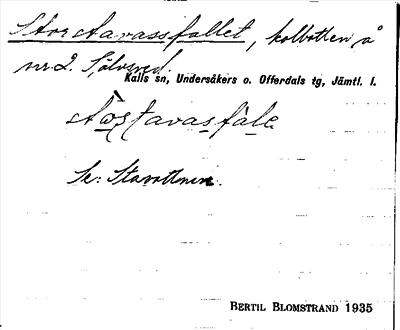 Storstavassfallet, kolbotten å
nr 2 Sölvsved.
Kalls sn, Undersåkers o. Offerdals tg, Jämtl. l.
Se: Stavattnen.
BERTIL BLOMSTRAND 1935